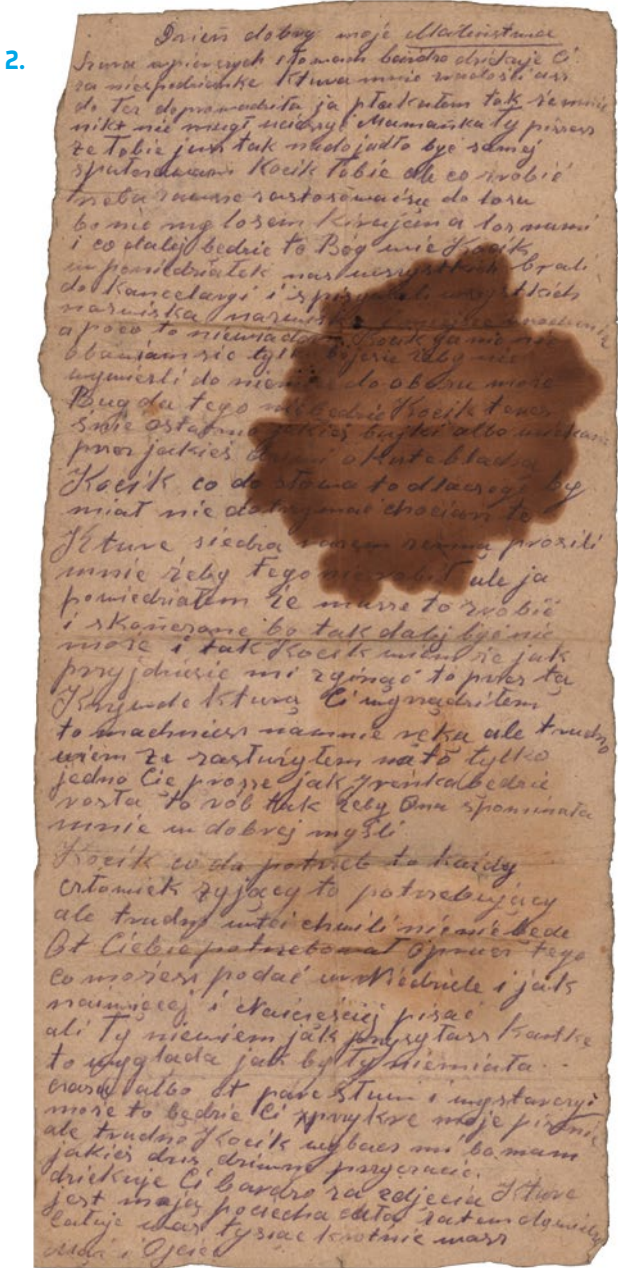 2.
Dzień dobry moje Maleństwa
wpierwszych słowach bardzo dziekuje Ci
za niespodzianke Ktura mnie
do łez doprowadziła ja płakałem tak żemnie
nikt nie mugł ucieszyć Mamańka ty piszesz
że Tobie jusz tak nadojadło być samej
Kocik Tobie ale co zrobić
trzeba zawsze zastosować sie do losu
bo nie my losem kirujem a los nami
i co dalej bedzie to Bóg wie Kocik
w poniedziałek nas wszystkich brali
do Kancelargi i wszystkich
nazwiska
a poco to niewiadomo Kocik ja nie nie
obawiam sie tylko żeby nie
wywieźli do do obozu może
Bug da tego niebedzie Kocik teraz
śnie ostatnio jakieś bujki albo
przez jakieś drzwi okute blachą
Kocik co do słowa to dlaczego by
miał nie dotrzymać chociasz te
Kture siedzą razem zemną prosili
mnie żeby tego nierobił ale ja
powiedziałem że musze to zrobić
i skończone bo tak dalej być nie
może i tak Kocik wiem że jak
przyjdzie mi zginąć to przez tą
Krzywde kturą Ci wyrządziłem
to machniesz namnie ręka ale trudno
wiem że zasłużyłem na to tylko
jedno Cie prosze jak Irenka bedzie
rosła to rób tak żeby Ona spominała
mnie w dobrej myśli
Kocik co do potrzeb to każdy
człowiek żyjący to potrzebujący
ale trudno w tei chwili nic nie bede
Ot Ciebie potrzebował oprucz tego
co możesz podać w Niedziele i jak
naiwięcej i Naiczeńściej pisać
ali Ty niewiem jak przysyłasz Kartke
to wyglada jak by Ty niemiała
czasu albo ot pare słuw i wystarczy
może to bedzie Ci zprzykre moje pisanie
ale trudno Kocik wybacz mi bo mam
jakieś dziś dziwne przyczucie.
dziekuje Ci bardzo za zdjęcia Kture
jest moją pociechą całą zatem dowidzenia
Całuje was tysiac krotnie wasz
Mąż i Ojciec